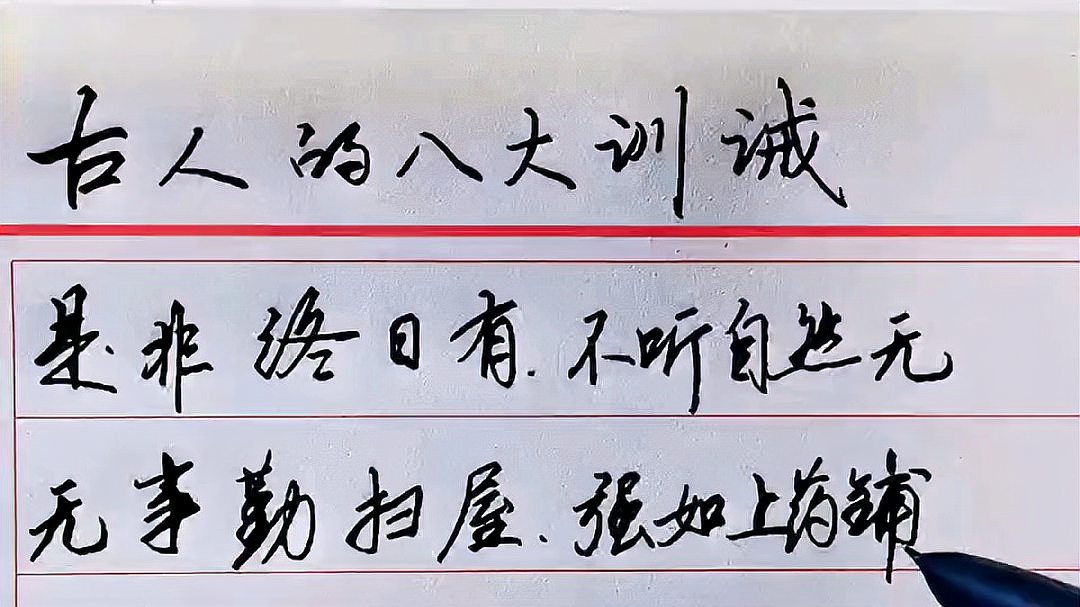 古人的八大训诫
是非终日有.不听自然无
无事勤扫屋.强如上药铺